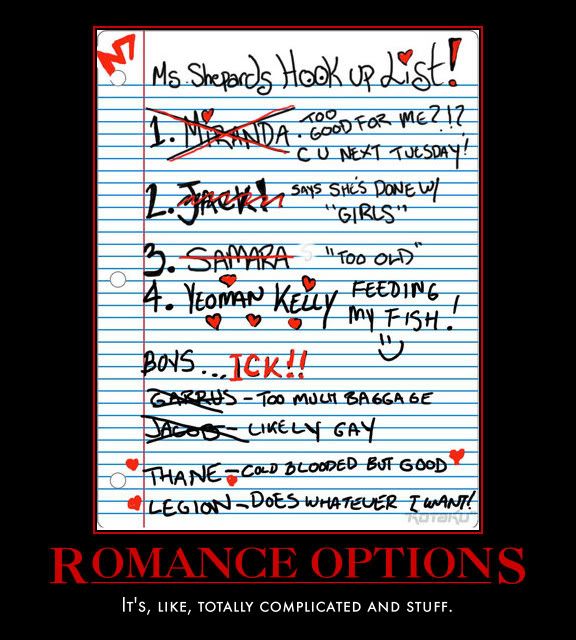 Ms. Shepard's Hook up List!
1. MIRANDA. TOO GOOD FOR ME?!?
C U NEXT TUESDAY!
2. JACK! SAYS SHE'S DONE W/ "GIRLS"
3. SAMARA "TOO OLD"
4. YEOMAN KELLY FEEDING MY FISH!
BOYS... ICK!!
GARRUS - TOO MUCH BAGGAGE
JACOB - LIKELY GAY
THANE - COLD BLOODED BUT GOOD
LEGION - DOES WHATEVER I WANT!
KOTAKU
ROMANCE OPTIONS
IT'S, LIKE, TOTALLY COMPLICATED AND STUFF.